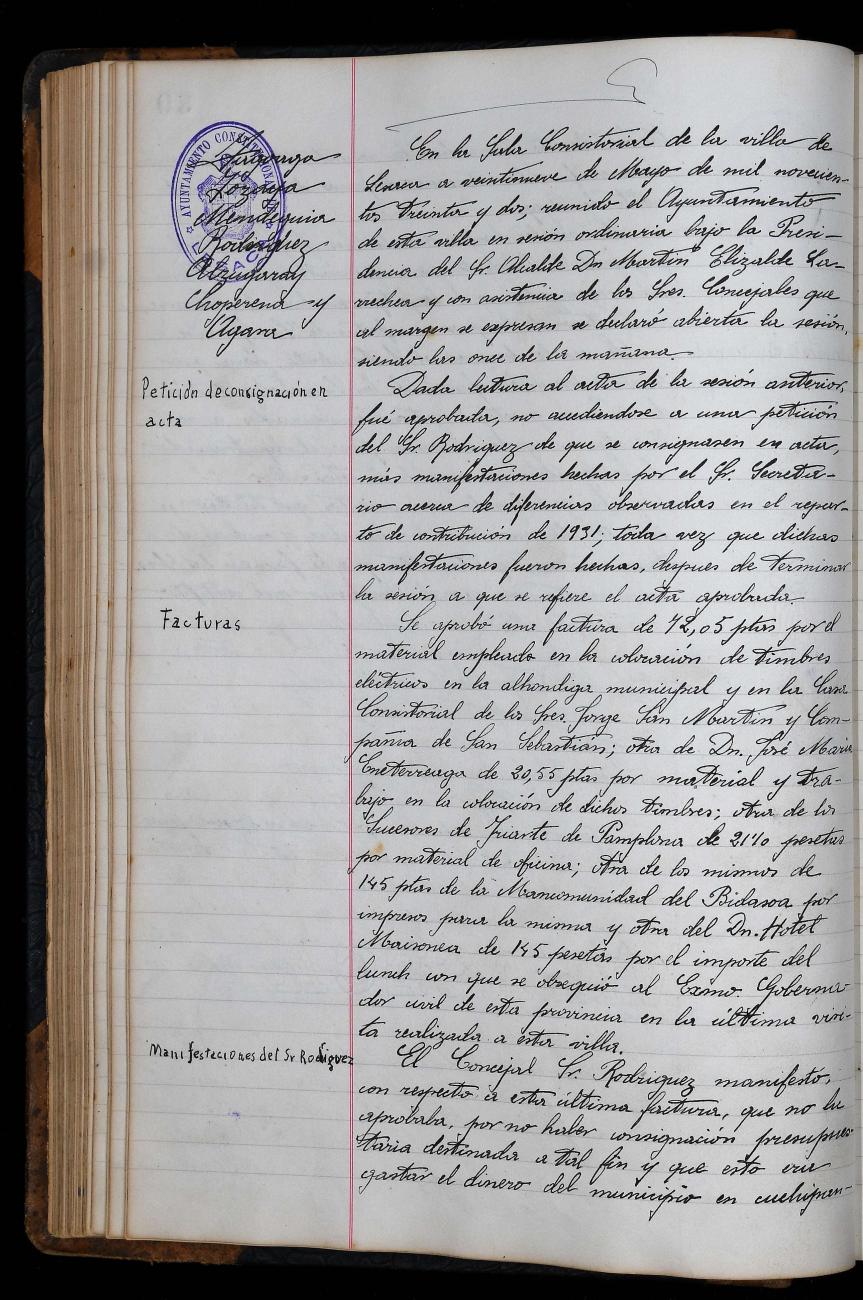 AYUNTAMIENTO CONSTITUCIONAL
Lozaya
Mendiguia
Rodriguez
Alzugaray
Choperena y
Agara
En la Sala Consistorial de la villa de
Lesaca a veintinueve de Mayo de mil novecien-
tos treinta y dos; reunido el Ayuntamiento
de esta villa en sesión ordinaria bajo la Presi-
dencia del Sr. Alcalde Dn Martin Elizalde La-
rrechea y con asistencia de los Sres. Concejales que
al margen se expresan se declaró abierta la sesión,
siendo las once de la mañana.
Petición de consignación en
acta
Dada lectura al acta de la sesión anterior,
fué aprobada, no accediendose a una petición
del Sr. Rodriguez de que se consignasen en acta,
más manifestaciones hechas por el Sr. Secreta-
rio acerca de diferencias observadas en el repar-
to de contribución de 1931; toda vez que dichas
manifestaciones fueron hechas, despues de terminar
la sesión a que se refiere el acta aprobada.
Facturas
Se aprobó una factura de 72,05 ptas por el
material empleado en la colocación de timbres
eléctricos en la alhondiga municipal y en la Casa
Consistorial de los Sres. Jorge San Martin y Com-
pañia de San Sebastián; otra de Dn. José Maria
de 20,55 ptas por material y tra-
bajo en la colocación de dichos timbres; otra de los
Sucesores de Iriarte de Pamplona de pesetas
por material de oficina; otra de los mismos de
145 ptas de la Mancomunidad del Bidasoa por
impresos para la misma y otra del Dn. Hotel
Maisonea de 145 pesetas por el importe del
lunch con que se obsequió al Exmo. Goberna-
dor civil de esta provincia en la última visi-
ta realizada a esta villa.
Manifestaciones del Sr Rodriguez
El Concejal Sr. Rodriguez manifestó,
con respecto a esta última factura, que no la
aprobaba, por no haber consignación presupues-
taria destinada a tal fin y que esto era
gastar el dinero del municipio en cuchipan-